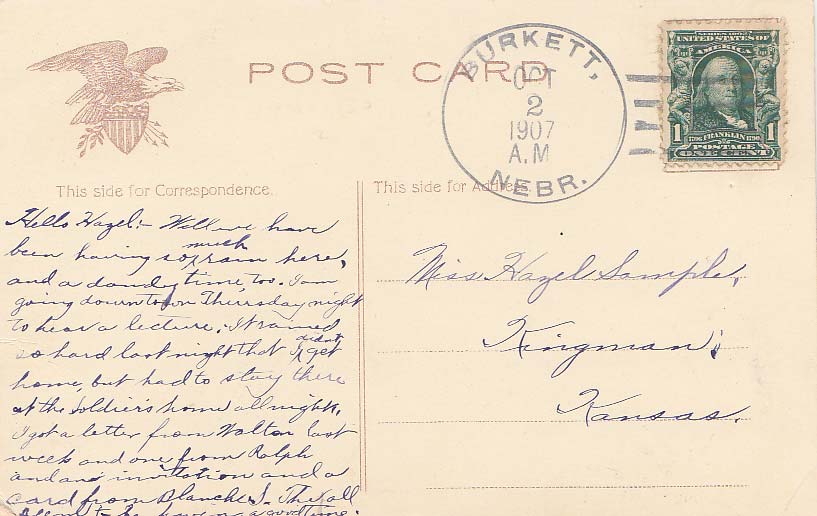 POST CARD
BURKETT,
OCT
2
1907
A.M
NEBR.
SERIES 1902
UNITED STATES OF
AMERICA
1 1790 FRANKLIN 1790 1
POSTAGE
ONE CENT
This side for Correspondence.
This side for Address.
Hello Hazel:- Well we have
been having so much rain here,
and a dandy time, too. I am
going down town Thursday night
to hear a lecture. It rained
so hard last night that I didn't get
home, but had to stay there
at the Soldier's home all night.
I got a letter from Walton last
week and one from Ralph
and an invitation and a
card from Blanche S. They all
seem to be having a good time.
Miss Hazel Sample,
Kingman,
Kansas.